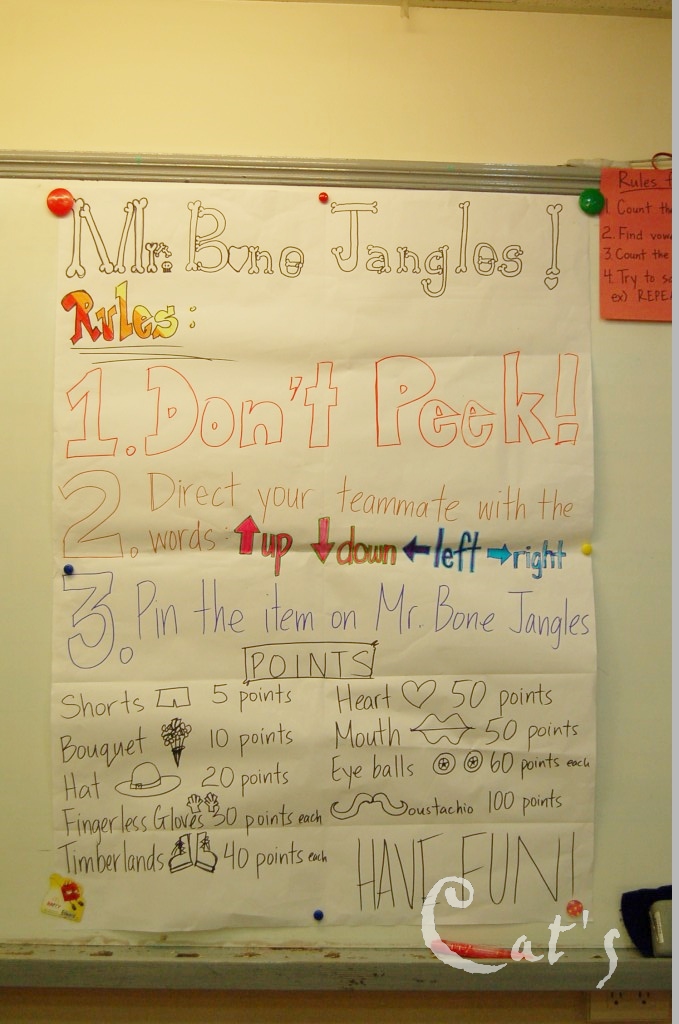 Mr. Bone Jangles!
Rules:
1. Don't Peek!
2. Direct your teammate with the
words: up down left right
3. Pin the item on Mr. Bone Jangles
POINTS
Shorts 5 points
Bouquet 10 points
Hat 20 points
Fingerless Gloves 30 points each
Timberlands 40 points each
Heart 50 points
Mouth 50 points
Eye balls 60 points each
Moustachio 100 points
HAVE FUN!
Rules
1. Count the
2. Find
3. Count the
4. Try to
ex)
Cat's